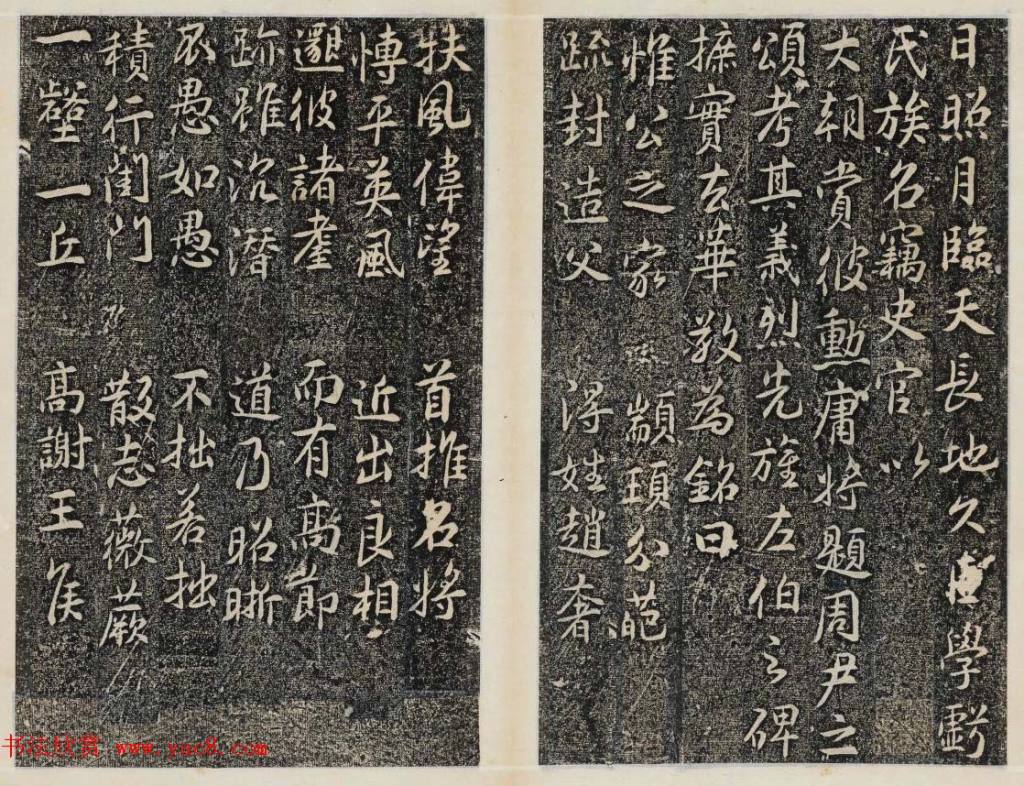 日照月臨天長地久學虧
氏族名竊史官以
大朝賞彼勳庸將題周尹之
頌考其義烈先旌左伯之碑
摭實去華敬為銘曰
惟公之家 顓頊分葩
疏封造父 得姓趙奢
扶風偉望 首推名將
博平英風 近出良相
邈彼諸耋 而有高節
跡雖沉潛 道乃昭晰
愚如愚 不拙若拙
積行閨門 散志薇蕨
一壑一丘 高謝王侯
书法欣赏 www.yac8.com